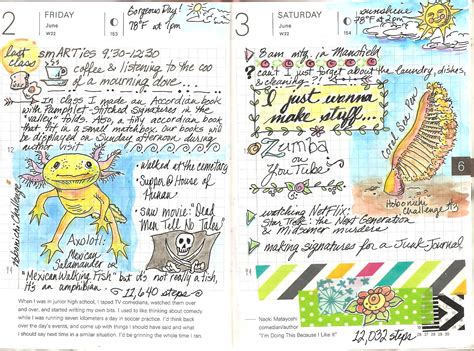 2
FRIDAY
June
W22
153
Gorgeous Day!
78°F at 7pm
last class
smARTies 9:30-12:30
coffee & listening to the coo
of a mourning dove...
In class I made an Accordian book
with Pamphlet Stitched Signatures in the
"valley" folds. Also, a tiny accordian book
that fit in a small matchbox. Our books will
be displayed on Sunday afternoon during
author visit
12
• walked at the cemetary
• Supper @ House of
Hunan
• saw movie: "Dead
Men Tell No Tales"
Hobonichi Challenge
Axolotl:
Mexican
Salamander or
"Mexican Walking Fish" but it's not really a fish,
it's an amphibian.
11,640 steps
When I was in junior high school, I taped TV comedians, watched them over
and over, and started writing my own bits. I used to like thinking about comedy
while I was running seven kilometers a day in soccer practice. I'd think back
over the day's events, and come up with things I should have said and what
I should say next time in a similar situation. I'd be grinning the whole time I ran.
3
SATURDAY
June
W22
154
sunshine
78°F at 2pm
8am mtg. in Mansfield
can't I just forget about the laundry, dishes,
& cleaning?
I just wanna
make stuff...
Zumba
on
YouTube
6
Hobonichi
Challenge
watching NetFlix:
Star Trek: the Next Generation
& Midsomer murders
making signatures for a Junk Journal
Naoki Matayoshi
comedian/author
"I'm Doing This Because I Like It"
12,032 steps